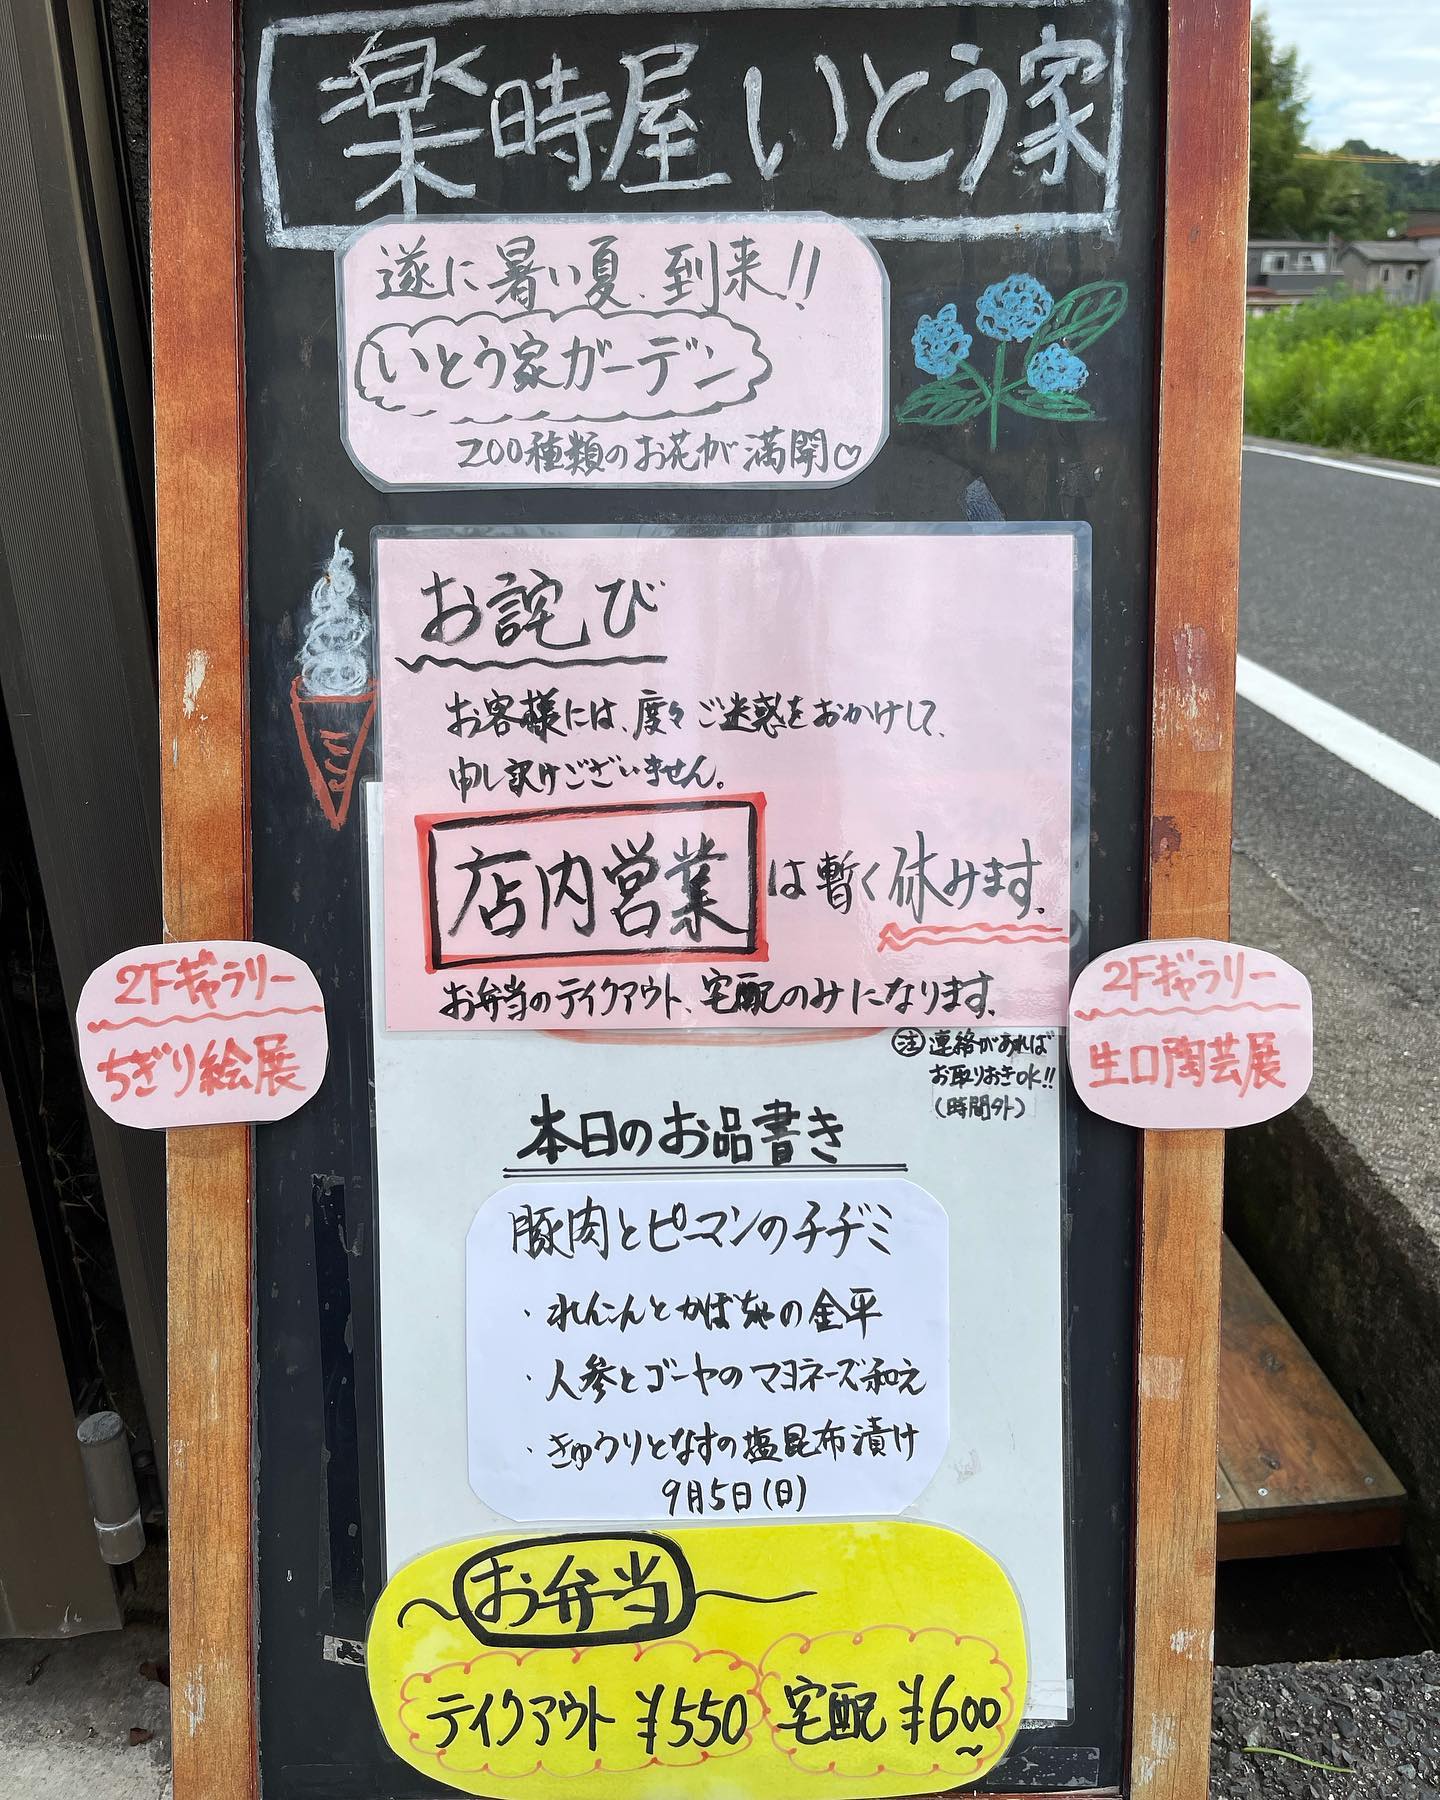 楽時屋 いとう家
遂に暑い夏、到来!!
いとう家ガーデン
200種類のお花が満開♡
お詫び
お客様には、度々ご迷惑をおかけして、
申し訳けございません。
店内営業は暫く休みます。
お弁当のテイクアウト、宅配のみになります。
注 連絡があれば
お取りおきOK!!
(時間外)
2Fギャラリー
ちぎり絵展
2Fギャラリー
生口陶芸展
本日のお品書き
豚肉とピーマンのチヂミ
・れんこんとかぼちゃの金平
・人参とゴーヤのマヨネーズ和え
・きゅうりとなすの塩昆布漬け
9月5日(日)
お弁当
テイクアウト ¥550
宅配 ¥600~